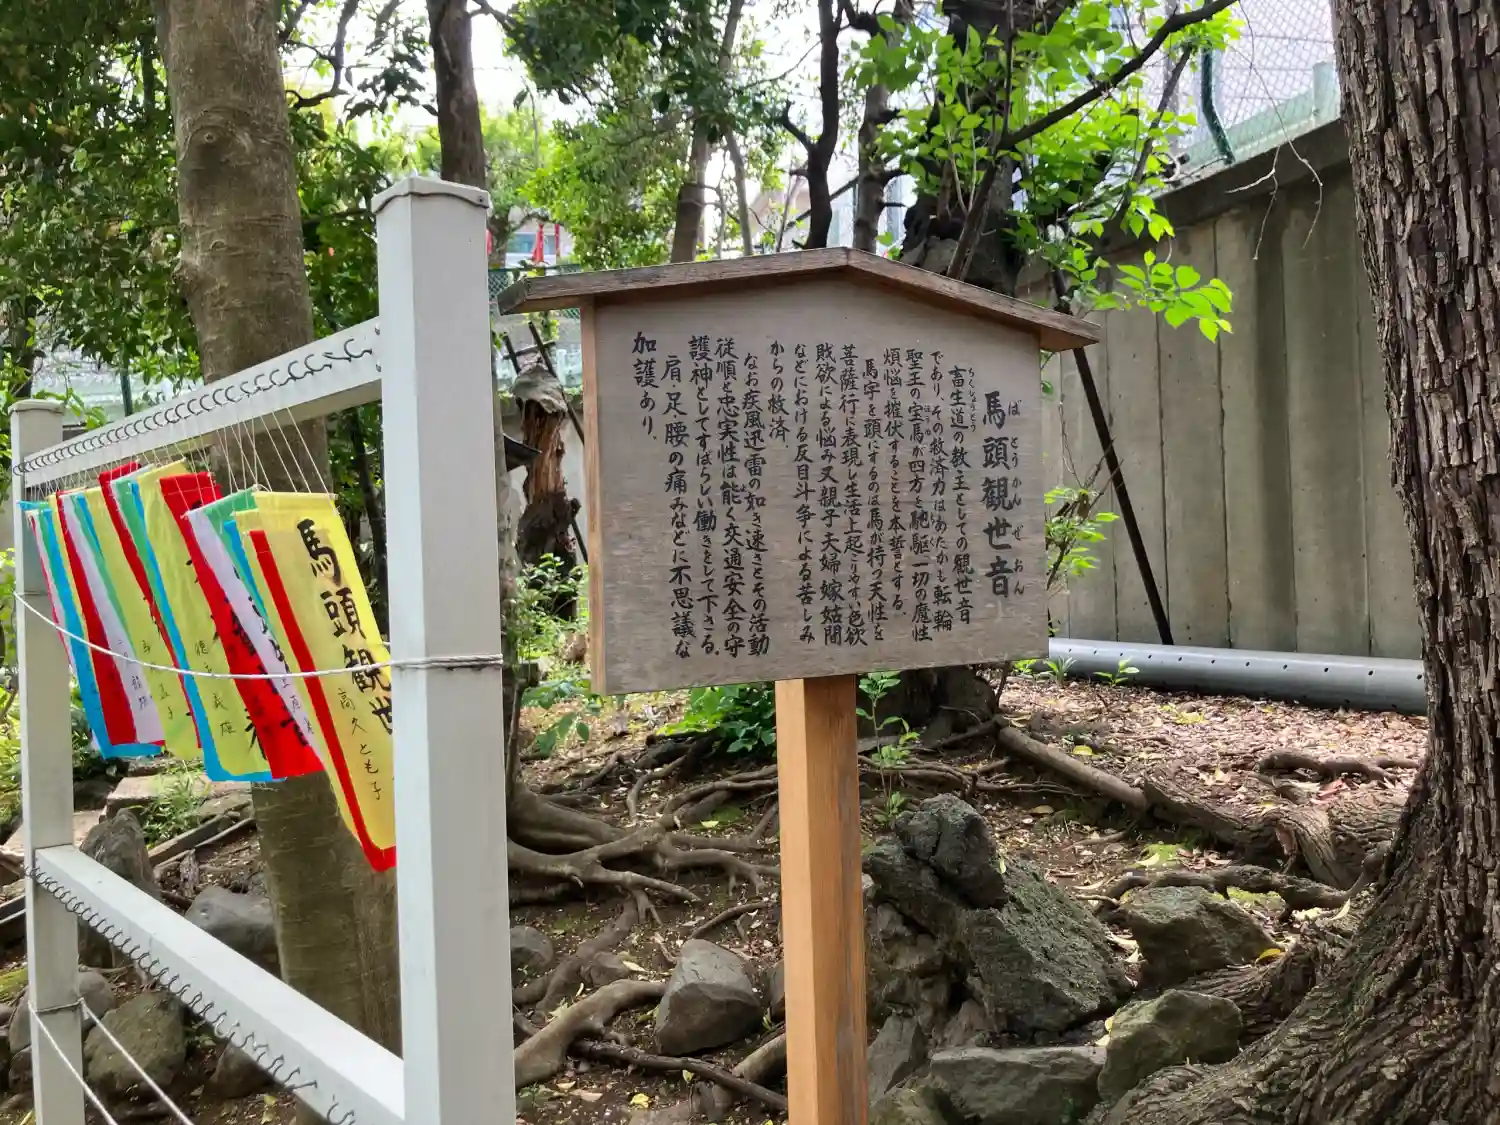 馬頭観世音
ばとうかんぜおん
畜生道の教主としての観世音
ちくしょうどう
であり、その救済力はあたかも転輪
聖王の宝馬が四方を馳駆一切の魔性
煩悩を摧伏することを本誓とする。
馬字を頭にするのは馬が持つ天性を
菩薩行に表現し生活上起こりやすい色欲
財欲による悩み又親子夫婦嫁姑間
などにおける反目斗争による苦しみ
からの救済、
なお疾風迅雷の如き速さとその活動
従順と忠実性は能く交通安全の守
護神としてすばらしい働きをして下さる。
肩、足、腰の痛みなどに不思議な
加護あり、
馬頭観世
高久とも子